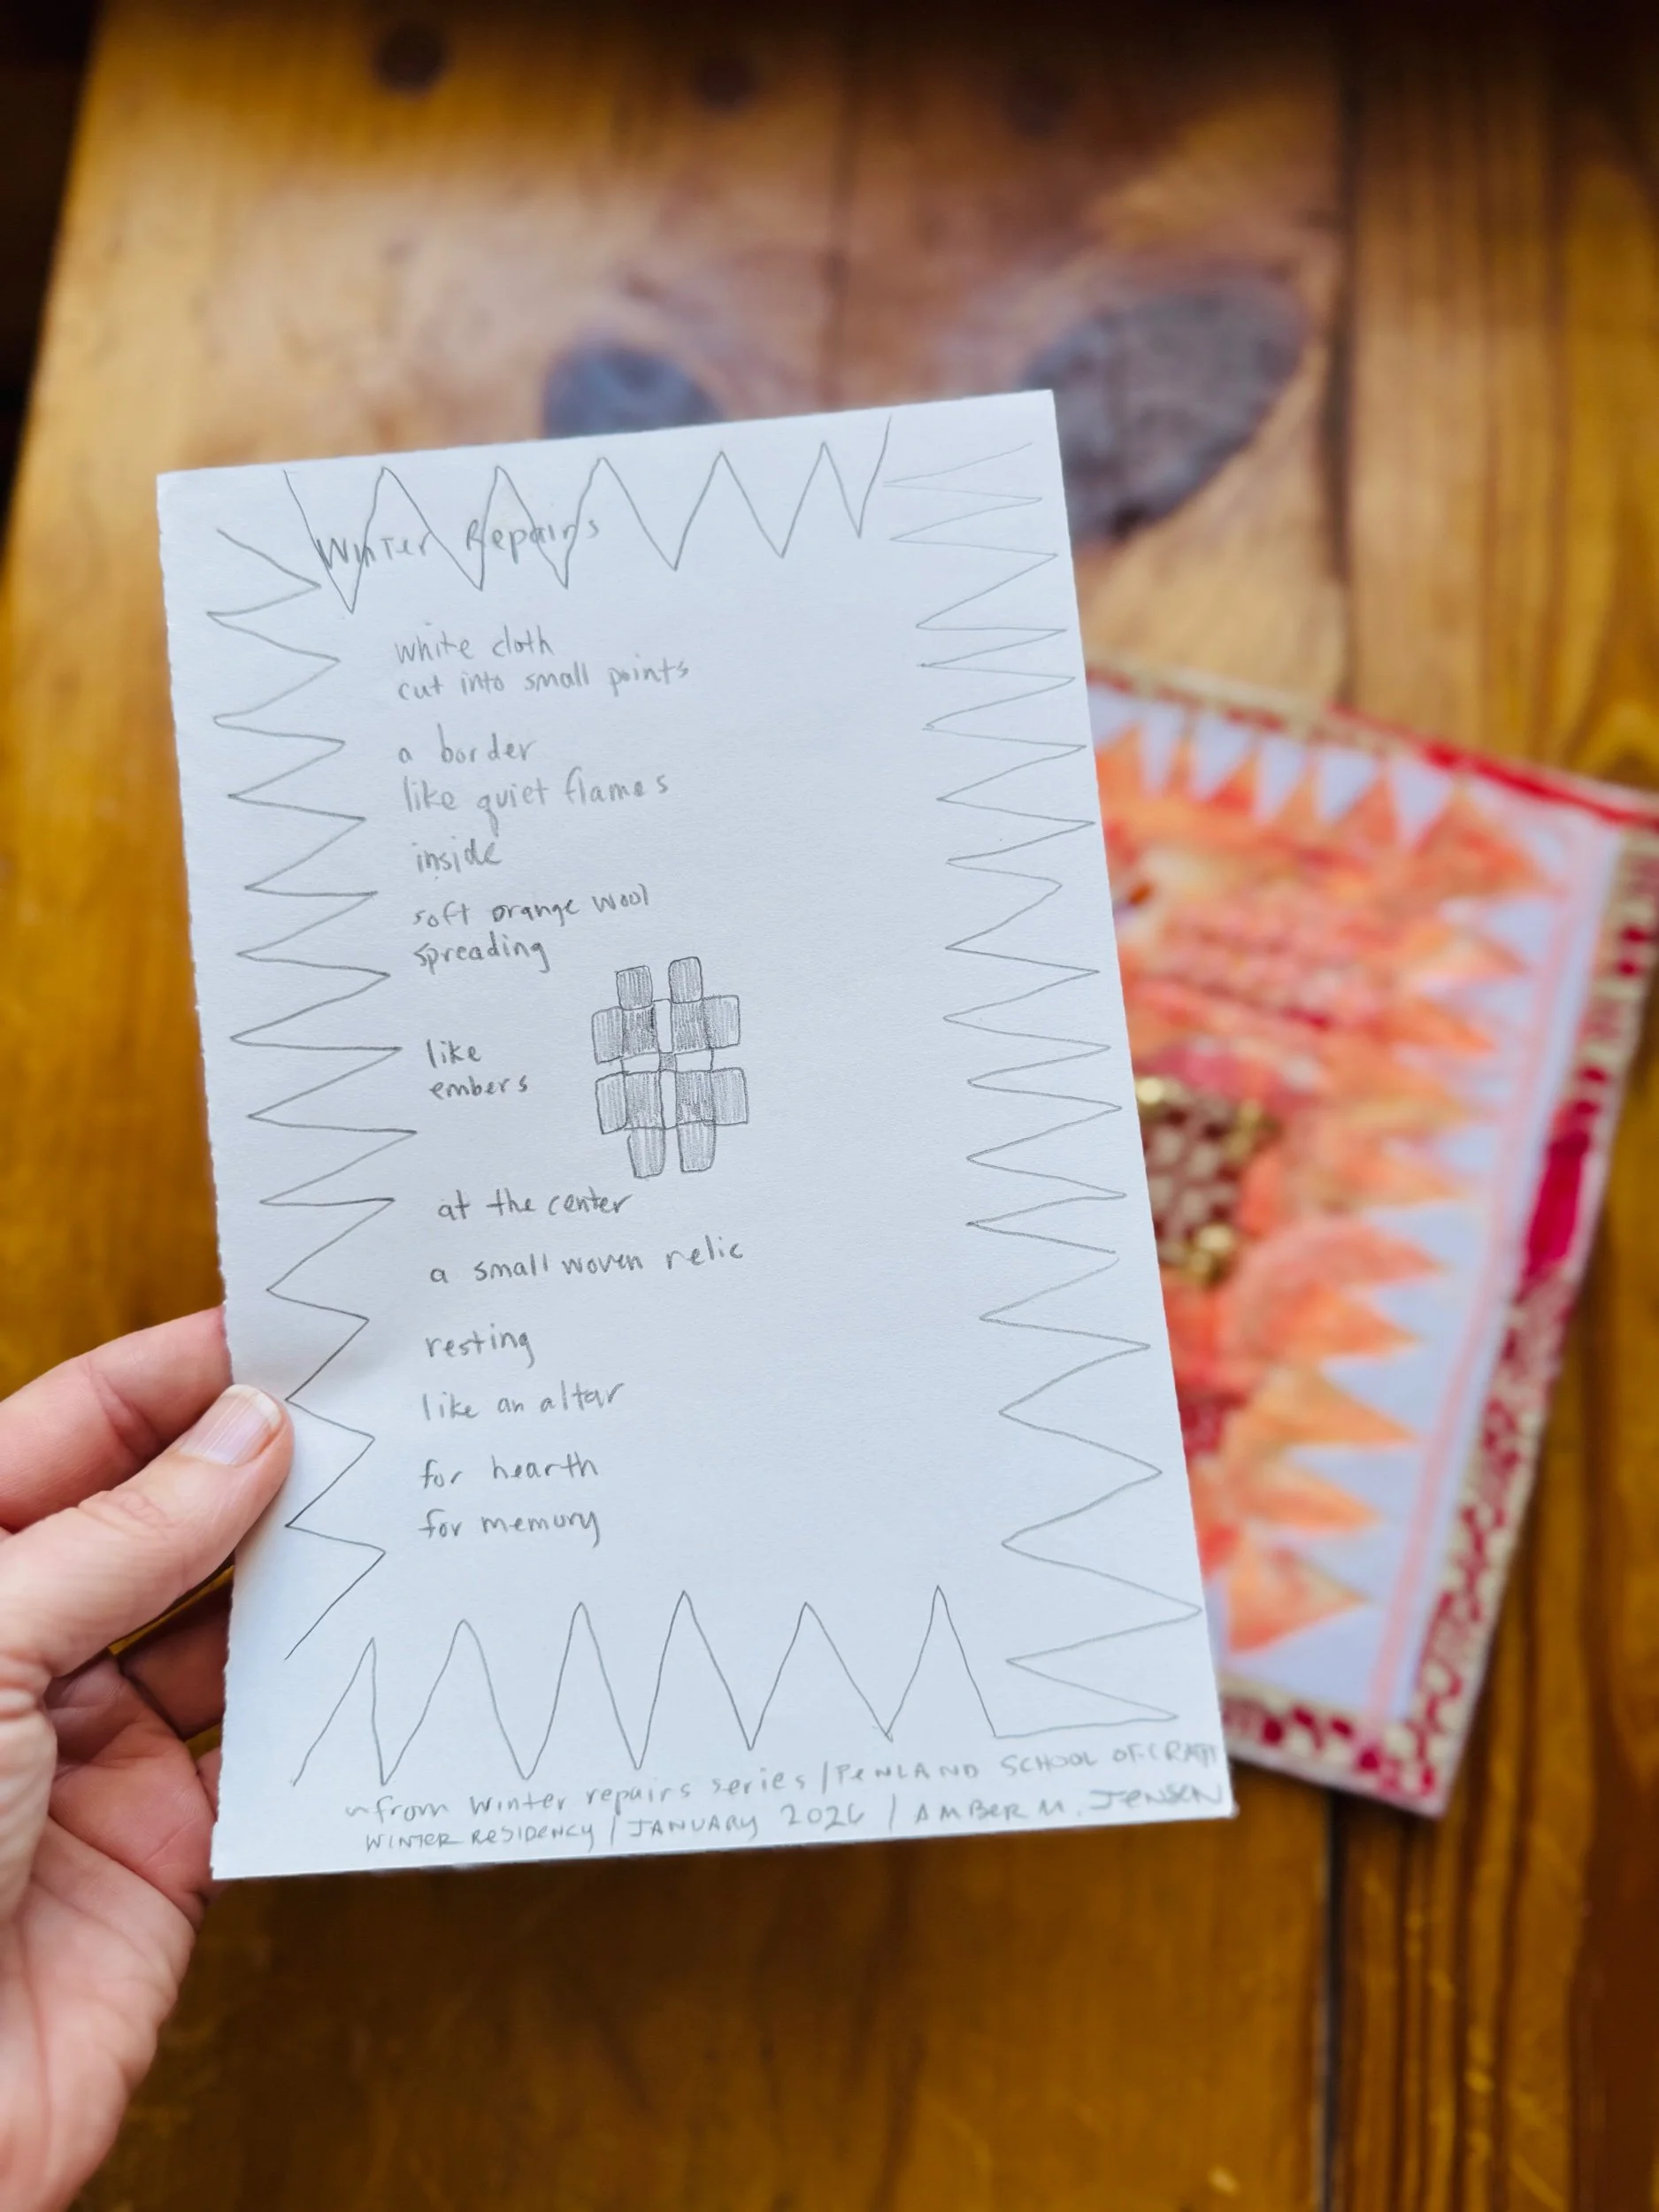 Winter Repairs
white cloth
cut into small points
a border
like quiet flames
inside
soft orange wool
spreading
like
embers
at the center
a small woven relic
resting
like an altar
for hearth
for memory
~from Winter repairs series / PENLAND SCHOOL OF CRAFT
WINTER RESIDENCY / JANUARY 2026 / AMBER M. JENSEN